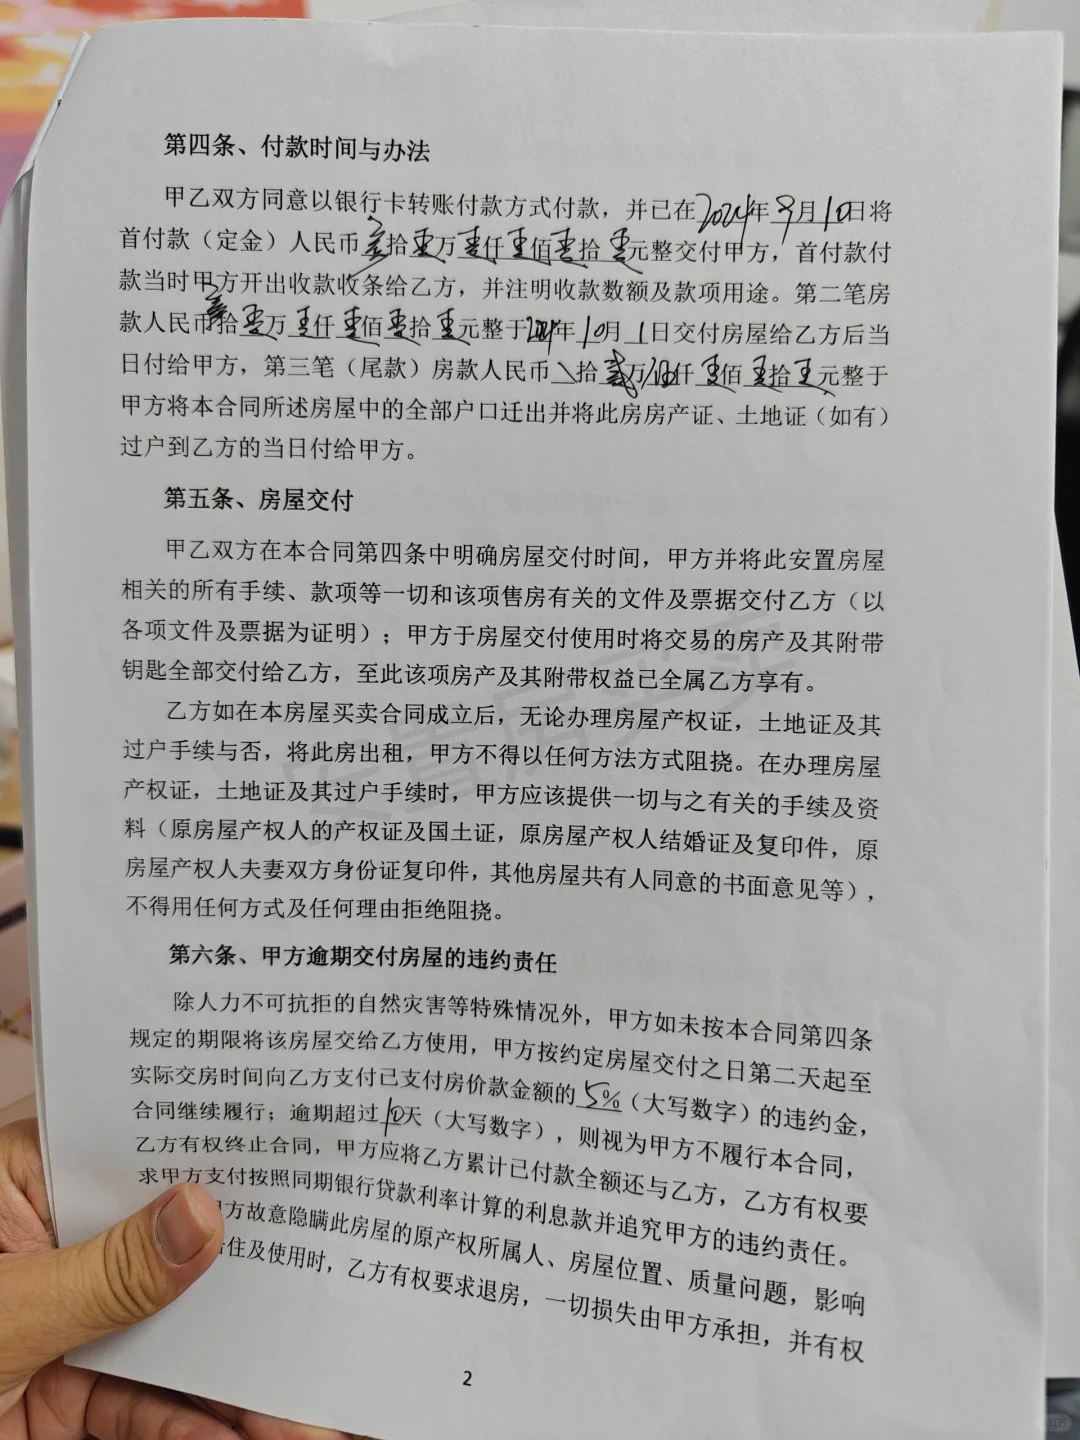 第四条、付款时间与办法
甲乙双方同意以银行卡转账付款方式付款，并已在2024年9月10日将
首付款（定金）人民币叁拾壹万壹仟壹佰壹拾壹元整交付甲方，首付款付
款当时甲方开出收款收条给乙方，并注明收款数额及款项用途。第二笔房
款人民币叁拾壹万壹仟壹佰壹拾壹元整于2024年10月1日交付房屋给乙方后当
日付给甲方，第三笔（尾款）房款人民币\拾贰万 仟壹佰壹拾壹元整于
甲方将本合同所述房屋中的全部户口迁出并将此房房产证、土地证（如有）
过户到乙方的当日付给甲方。
第五条、房屋交付
甲乙双方在本合同第四条中明确房屋交付时间，甲方并将此安置房屋
相关的所有手续、款项等一切和该项售房有关的文件及票据交付乙方（以
各项文件及票据为证明）；甲方于房屋交付使用时将交易的房产及其附带
钥匙全部交付给乙方，至此该项房产及其附带权益已全属乙方享有。
乙方如在本房屋买卖合同成立后，无论办理房屋产权证，土地证及其
过户手续与否，将此房出租，甲方不得以任何方法方式阻挠。在办理房屋
产权证，土地证及其过户手续时，甲方应该提供一切与之有关的手续及资
料（原房屋产权人的产权证及国土证，原房屋产权人结婚证及复印件，原
房屋产权人夫妻双方身份证复印件，其他房屋共有人同意的书面意见等），
不得用任何方式及任何理由拒绝阻挠。
第六条、甲方逾期交付房屋的违约责任
除人力不可抗拒的自然灾害等特殊情况外，甲方如未按本合同第四条
规定的期限将该房屋交给乙方使用，甲方按约定房屋交付之日第二天起至
实际交房时间向乙方支付已支付房价款金额的5%（大写数字）的违约金，
合同继续履行；逾期超过10天（大写数字），则视为甲方不履行本合同，
乙方有权终止合同，甲方应将乙方累计已付款全额还与乙方，乙方有权要
求甲方支付按照同期银行贷款利率计算的利息款并追究甲方的违约责任。
方故意隐瞒此房屋的原产权所属人、房屋位置、质量问题，影响
住及使用时，乙方有权要求退房，一切损失由甲方承担，并有权
2
安置房买卖